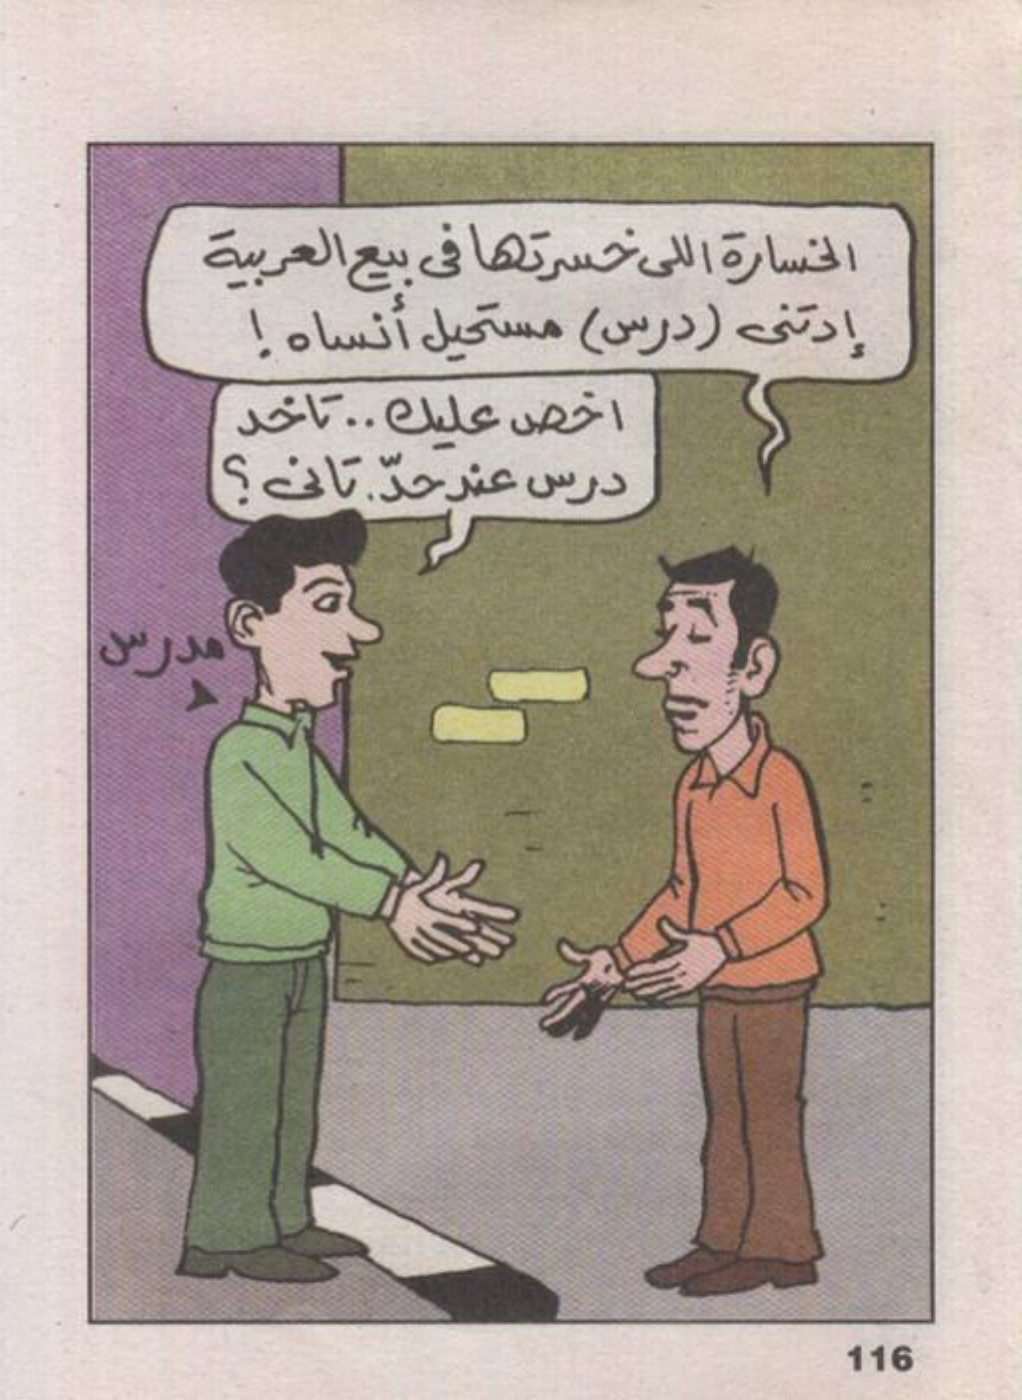 الخسارة اللى خسرتها فى بيع العربية
إدتنى (درس) مستحيل أنساه !
اخص عليك .. تاخد
درس عند حدّ. تانى ؟
مدرس
116